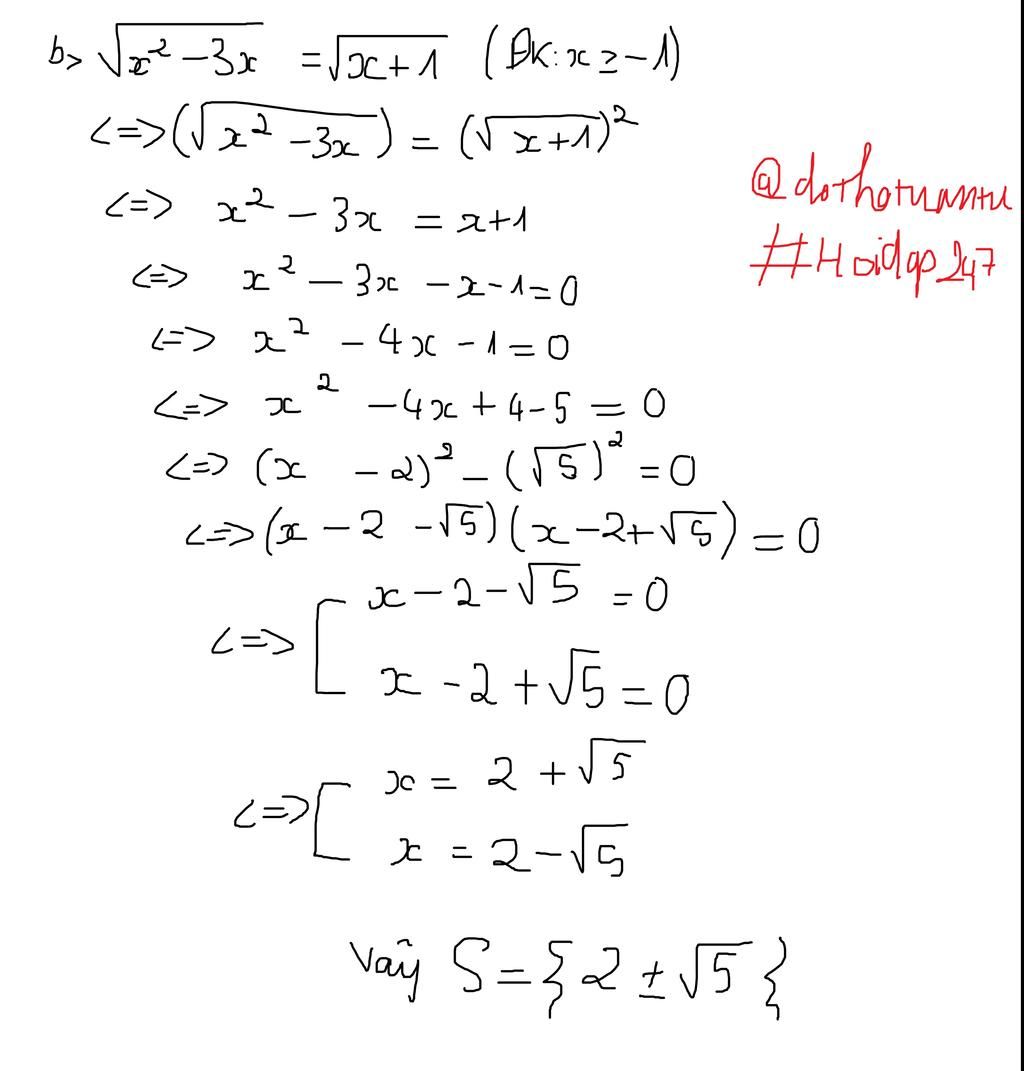 b> √(x² - 3x) = √(x+1) (ĐK: x ≥ -1)
<=> (√(x² - 3x)) = (√(x+1))²
<=> x² - 3x = x+1
<=> x² - 3x - x - 1 = 0
<=> x² - 4x - 1 = 0
<=> x² - 4x + 4 - 5 = 0
<=> (x - 2)² - (√5)² = 0
<=> (x - 2 - √5)(x - 2 + √5) = 0
<=> [ x - 2 - √5 = 0
x - 2 + √5 = 0
<=> [ x = 2 + √5
x = 2 - √5
Vậy S = { 2 ± √5 }
@dothotuantu
#Hoidap247